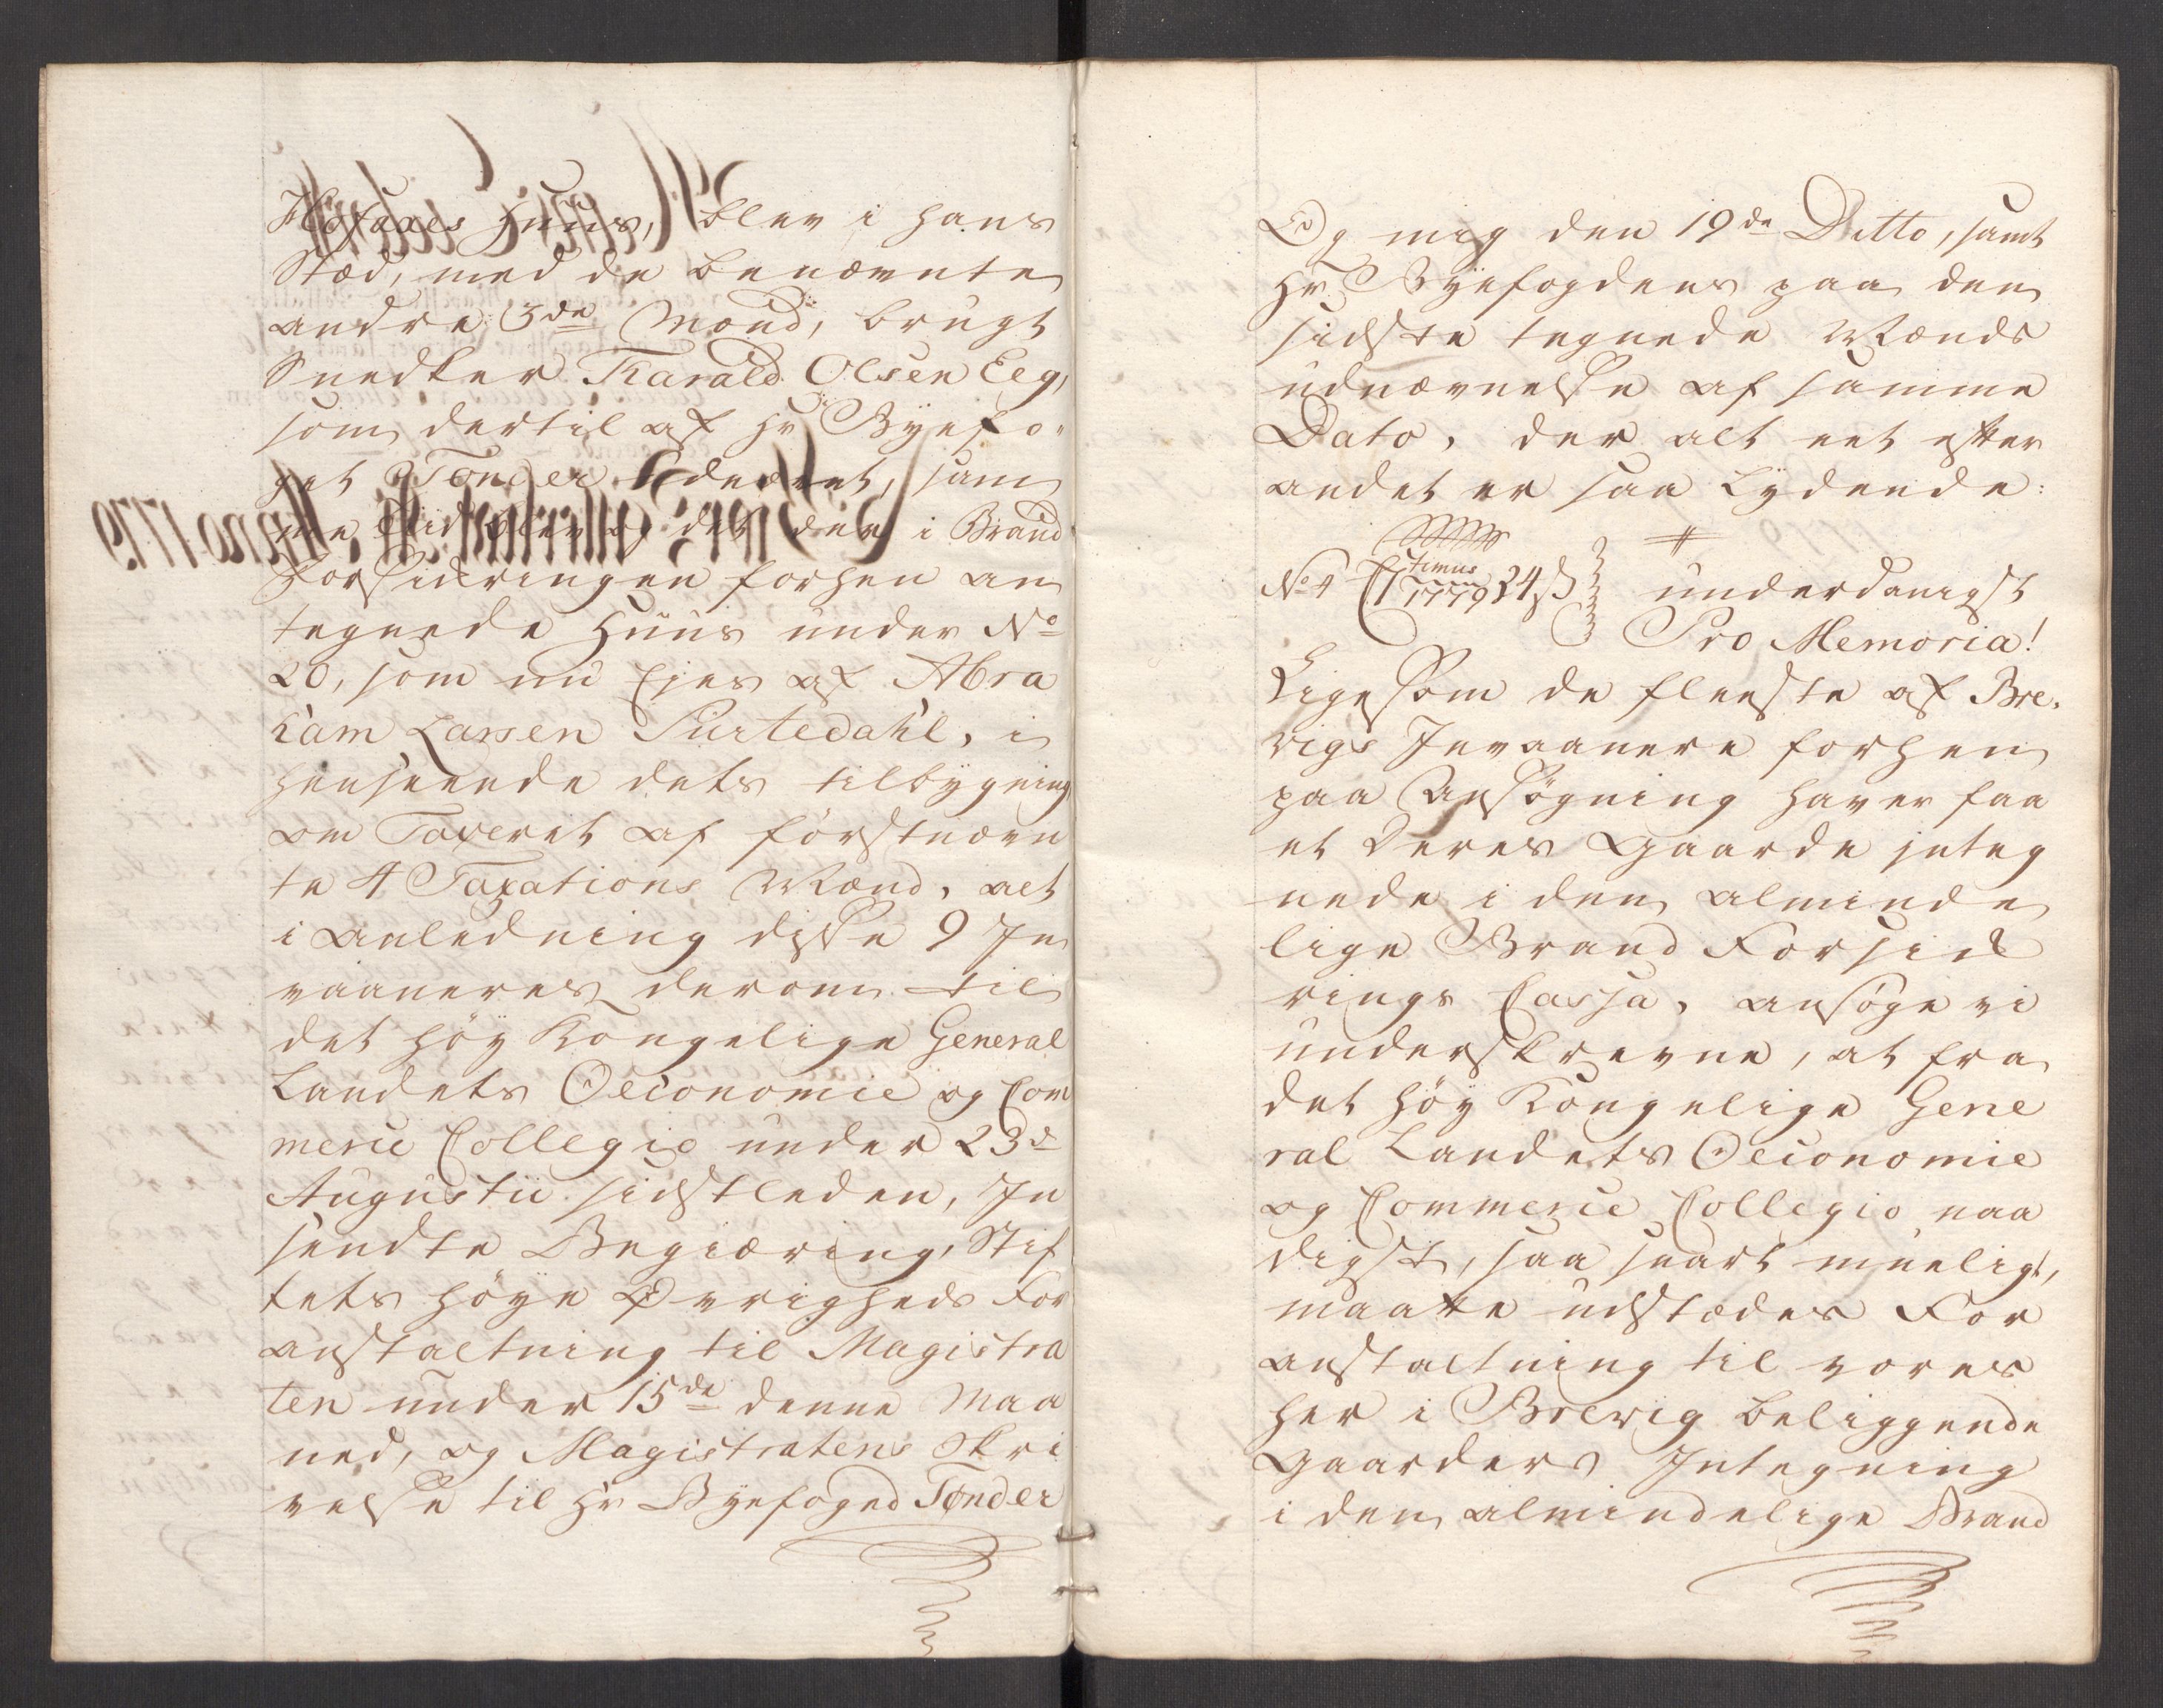 Huus, blev i hans
Stæd, med de benævnte
andre 3de Mænd, brugt
Snedker Harald Olsen Eeg,
som dertil af Hr Byefo-
get Tonder, sam
me Tid blev og det der i Brand
Forsikringen forhen an
tegnede Huus under No
20, som nu Ejes af Abra
ham Larsen Surtedahl, i
henseende dets tilbygning
om Taxeret af förstnævn
te 4 Taxations Mænd, alt
i Anledning disse 9 In
vaaneres derom til
det höy Kongelige General
Landets Oeconomie og Com
merce Collegio under 23de
Augustii sidstleden, In
sendte Begiæring, Stif
tets höye Øvrigheds For
anstaltning til Magistra
ten under 15de denne Maa
ned, og Magistratens Skri
velse til Hr Byefoged Tønder
Og mig den 19de Ditto, samt
Hr Byefogdens paa den
sidste tegnede Mænds
udnævnelse af samme
Dato, der alt eet efter
andet er saa Lydende:
No 4 Ctimus 1779 24 ß underdanigst
Pro Memoria!
Ligesom de fleeste af Bre-
vigs Invaanere forhen
paa Ansögning haver faa
et Deres Gaarde integ
nede i den alminde
lige Brand Forsik
rings Cassa, ansöge vi
underskrevne, at fra
det höy Kongelige Gene
ral Landets Oeconomie
og Commerce Collegio naa
digst, saa snart mueligt,
maatte udstædes For
anstaltning til vores
her i Brevig beliggende
Gaarders Integning
i den almindelige Brand